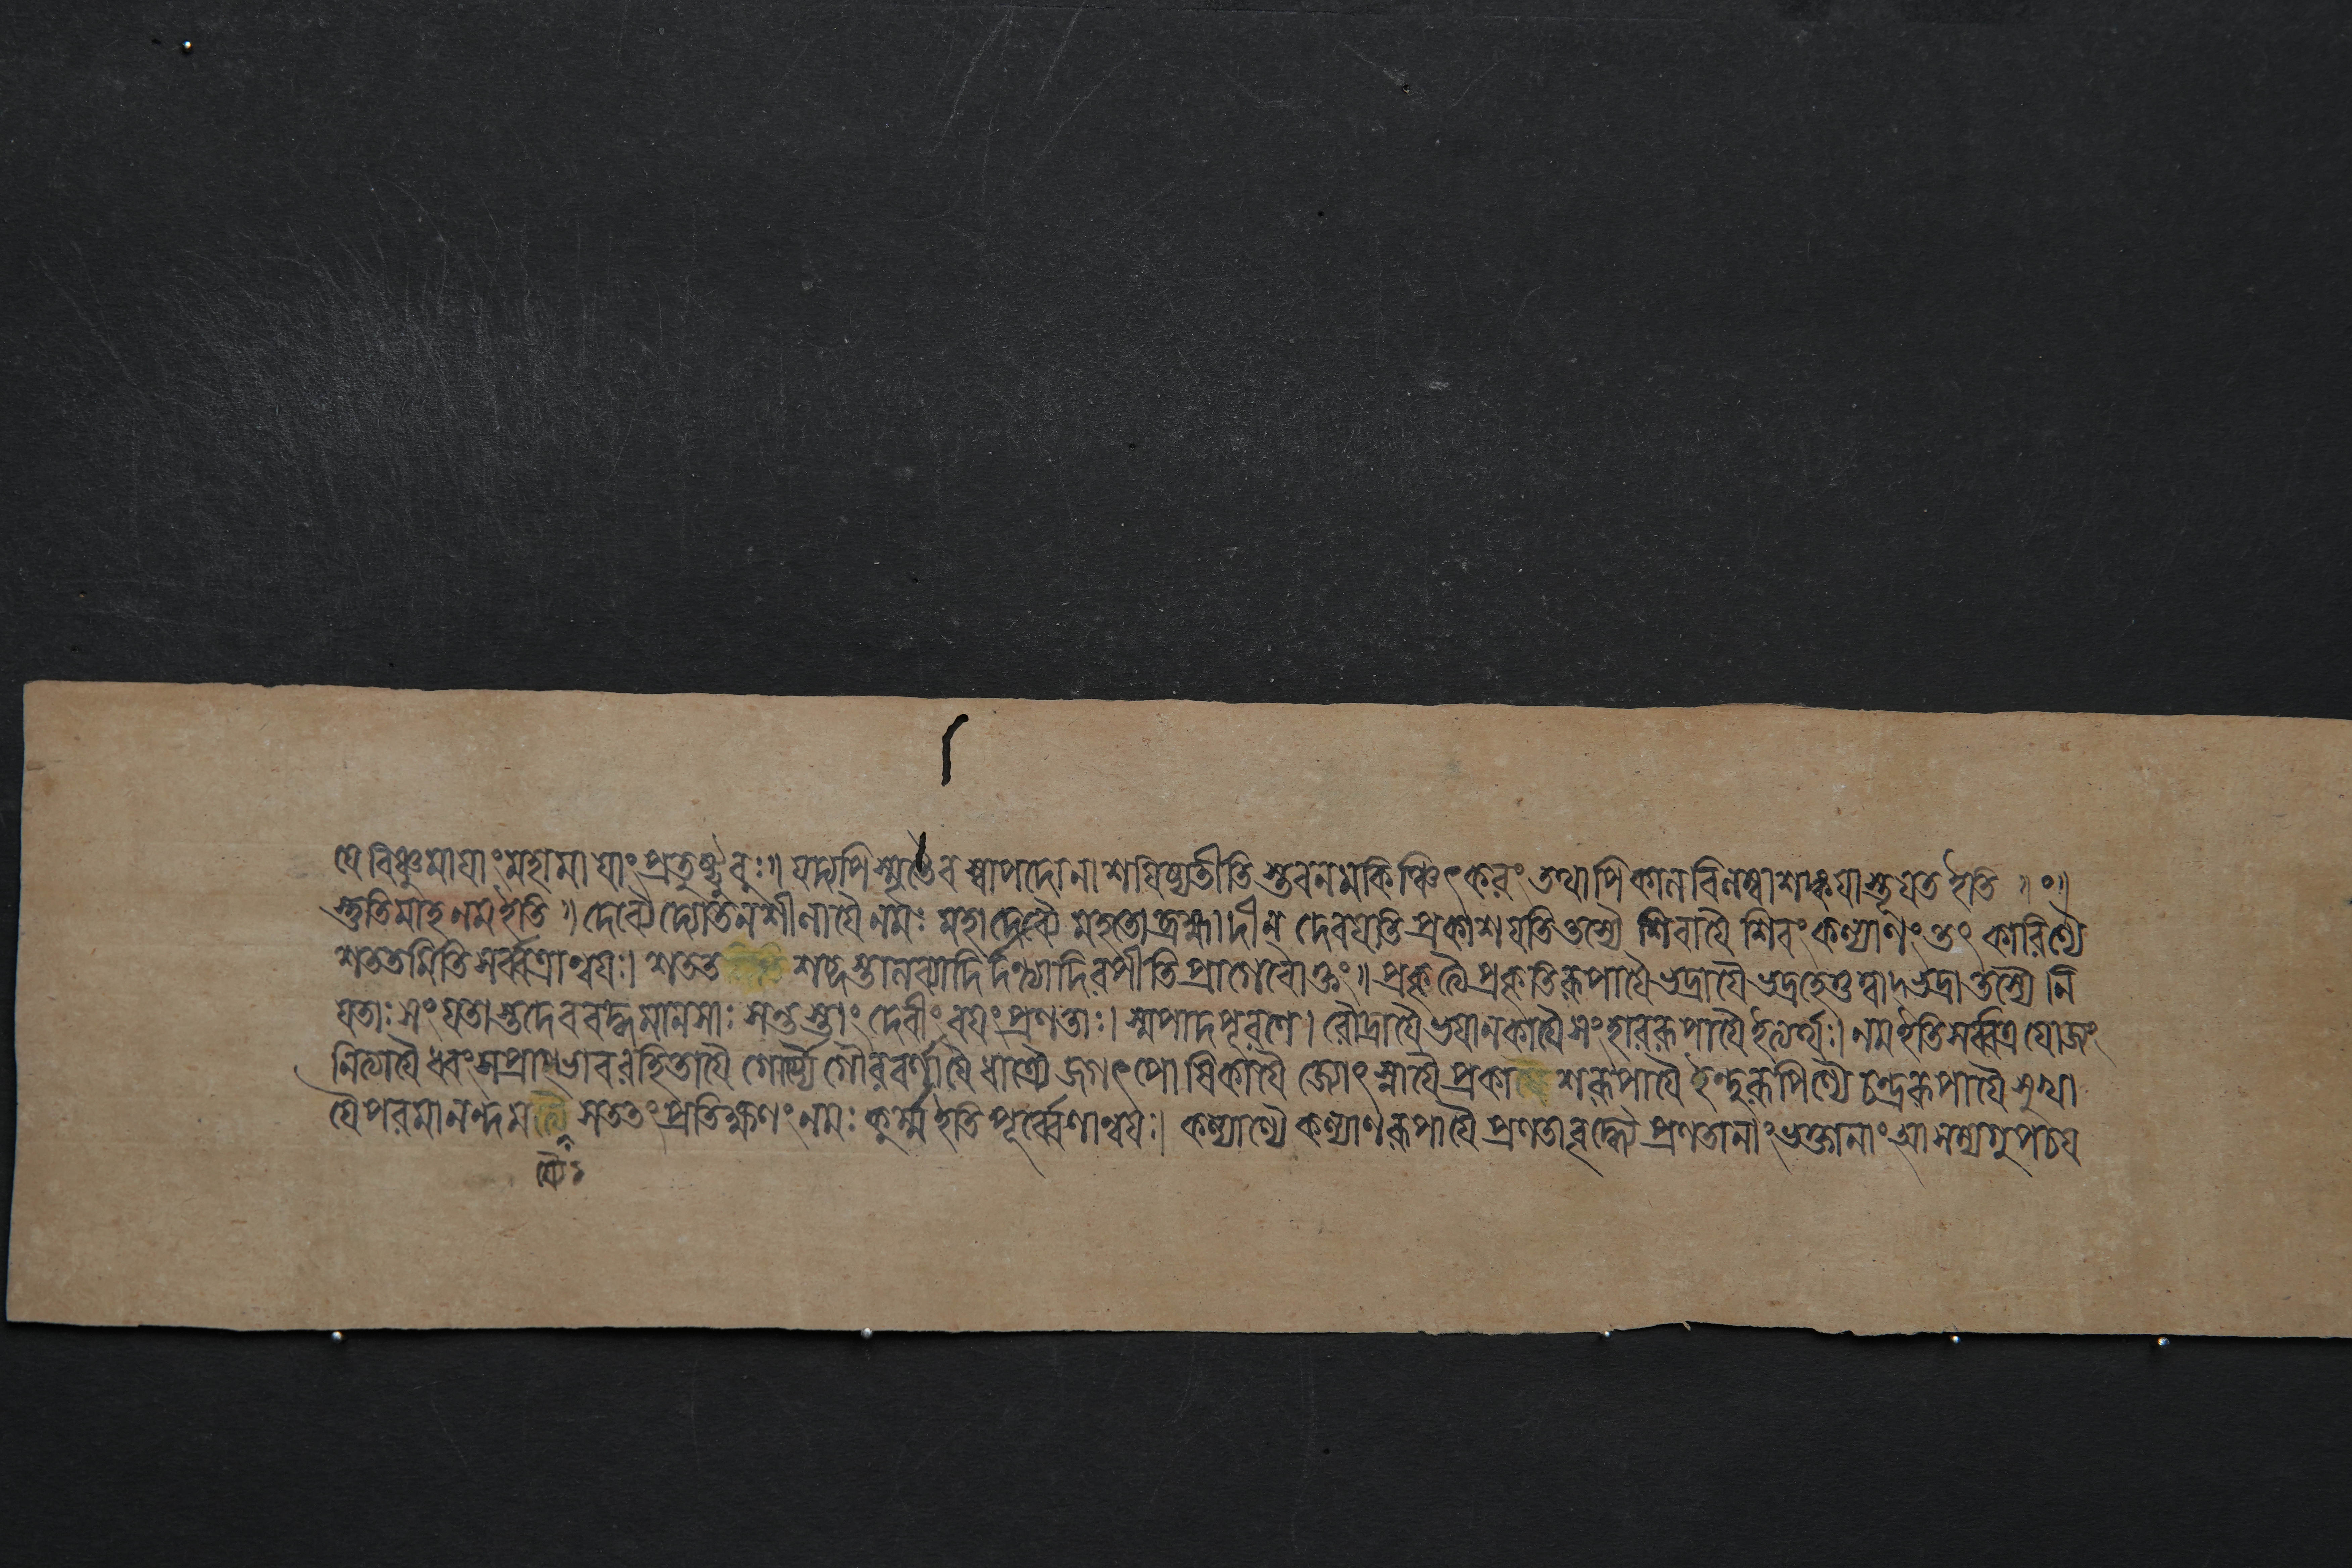 যে বিষ্ণুমাযাং মহামাযাং প্রতুষ্টুবুঃ॥ যদ্যপি স্মৃতৈব স্বাপদো নাশযিষ্যতীতি স্তবনমকিঞ্চিৎকরং তথাপি কালবিলম্বাশঙ্কযা স্তূযত ইতি ॥ ০॥
স্তুতিমাহ নম ইতি ॥ দেব্যৈ দ্যোতনশীলাযৈ নমঃ মহাদেব্যৈ মহতো ব্রহ্মাদীন্ দেবযতি প্রকাশযতি তস্যৈ শিবাযৈ শিবং কল্যাণং তৎ কারিণ্যৈ
শততমিতি সর্ব্বত্রান্বযঃ। শতত শব্দস্তালব্যাদির্দন্ত্যাদিরপীতি প্রাগেবোক্তং॥ প্রকৃত্যৈ প্রকৃতিরূপাযৈ ভদ্রাযৈ ভদ্রহেতুত্বাদ্ভদ্রা তস্যৈ নি
যতাঃ সংযতাস্তদেববদ্ধমানসাঃ সন্তস্তাং দেবীং বযং প্রণতাঃ। স্মপাদপূরণে। রৌদ্রাযৈ ভযানকাযৈ সংহাররূপাযৈ ইত্যর্থঃ। নম ইতি সর্ব্বত্র যোজ্যং
নিত্যাযৈ ধ্বংসপ্রাগভাবরহিতাযৈ গৌর্য্যৈ গৌরবর্ণাযৈ ধাত্র্যৈ জগৎপোষিকাযৈ জ্যোৎস্নাযৈ প্রকাশরূপাযৈ ইন্দুরূপিণ্যৈ চন্দ্ররূপাযৈ সুখা
যৈ পরমানন্দম সততং প্রতিক্ষণং নমঃ কুর্ম্ম ইতি পূর্ব্বেণান্বযঃ। কল্যাণ্যৈ কল্যাণরূপাযৈ প্রণতাবৃদ্ধ্যৈ প্রণতানাং ভক্তানাং আ সম্যগুপচয
য্যৈ ৬